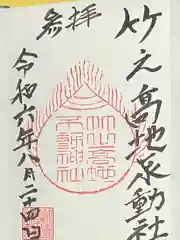 竹之高地不動社
参拝
令和六年八月二十四日
竹山高地
不動神社